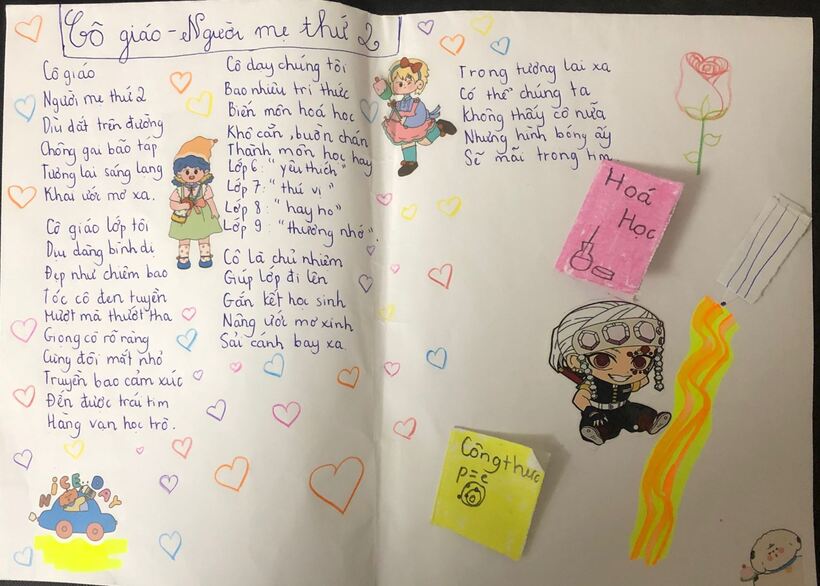 Cô giáo - Người mẹ thứ 2
Cô giáo
Người mẹ thứ 2
Dìu dắt trên đường
Chông gai bão táp
Tương lai sáng lạng
Khai ước mơ xa.
Cô giáo lớp tôi
Dịu dàng bình dị
Đẹp như chiêm bao
Tóc cô đen tuyền
Mượt mà thướt tha
Giọng cô rõ ràng
Cùng đôi mắt nhỏ
Truyền bao cảm xúc
Đến được trái tim
Hàng vạn học trò.
Cô dạy chúng tôi
Bao nhiêu tri thức
Biến môn hoá học
Khô cằn, buồn chán
Thành môn học hay
Lớp 6: "yêu thích"
Lớp 7: "thú vị"
Lớp 8: "hay ho"
Lớp 9: "thương nhớ".
Cô là chủ nhiệm
Giúp lớp đi lên
Gắn kết học sinh
Nâng ước mơ xinh
Sải cánh bay xa
Trong tương lai xa
Có thể chúng ta
Không thấy cô nữa
Nhưng hình bóng ấy
Sẽ mãi trong tim
Hoá
Học
Công thức
p=e
NICE DAY